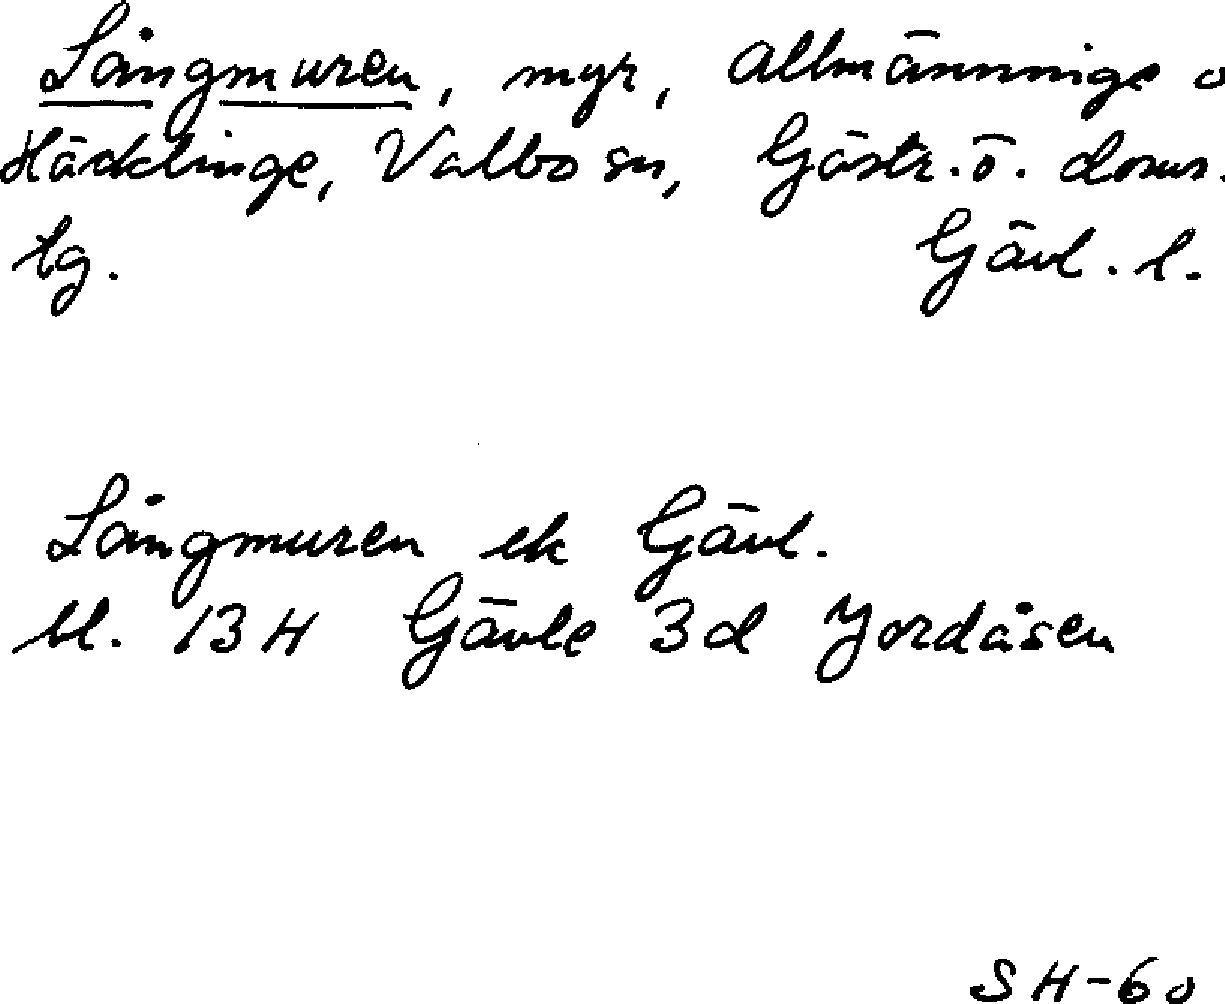 Långmuren, myr, Allmänninge o
Häcklinge, Valbo sn, Gästr. ö. doms.
tg. Gävl. l.
Långmuren ek Gävl.
bl. 13H Gävle 3d Jordåsen
SH-60